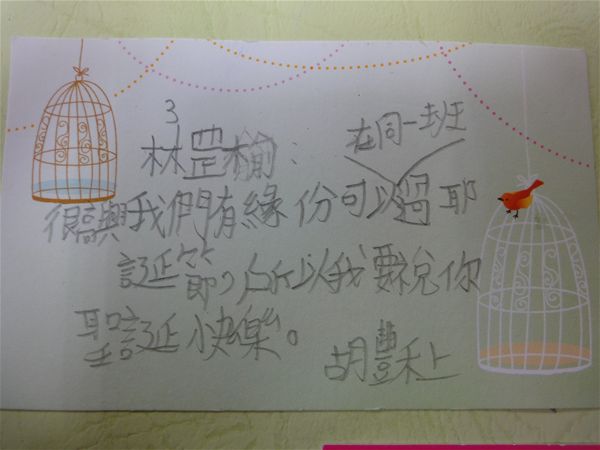 3
在同一班
林罡榆:
很我們有緣份可以過耶
誕節,所以我要祝你
聖誕快樂。
胡豐禾上